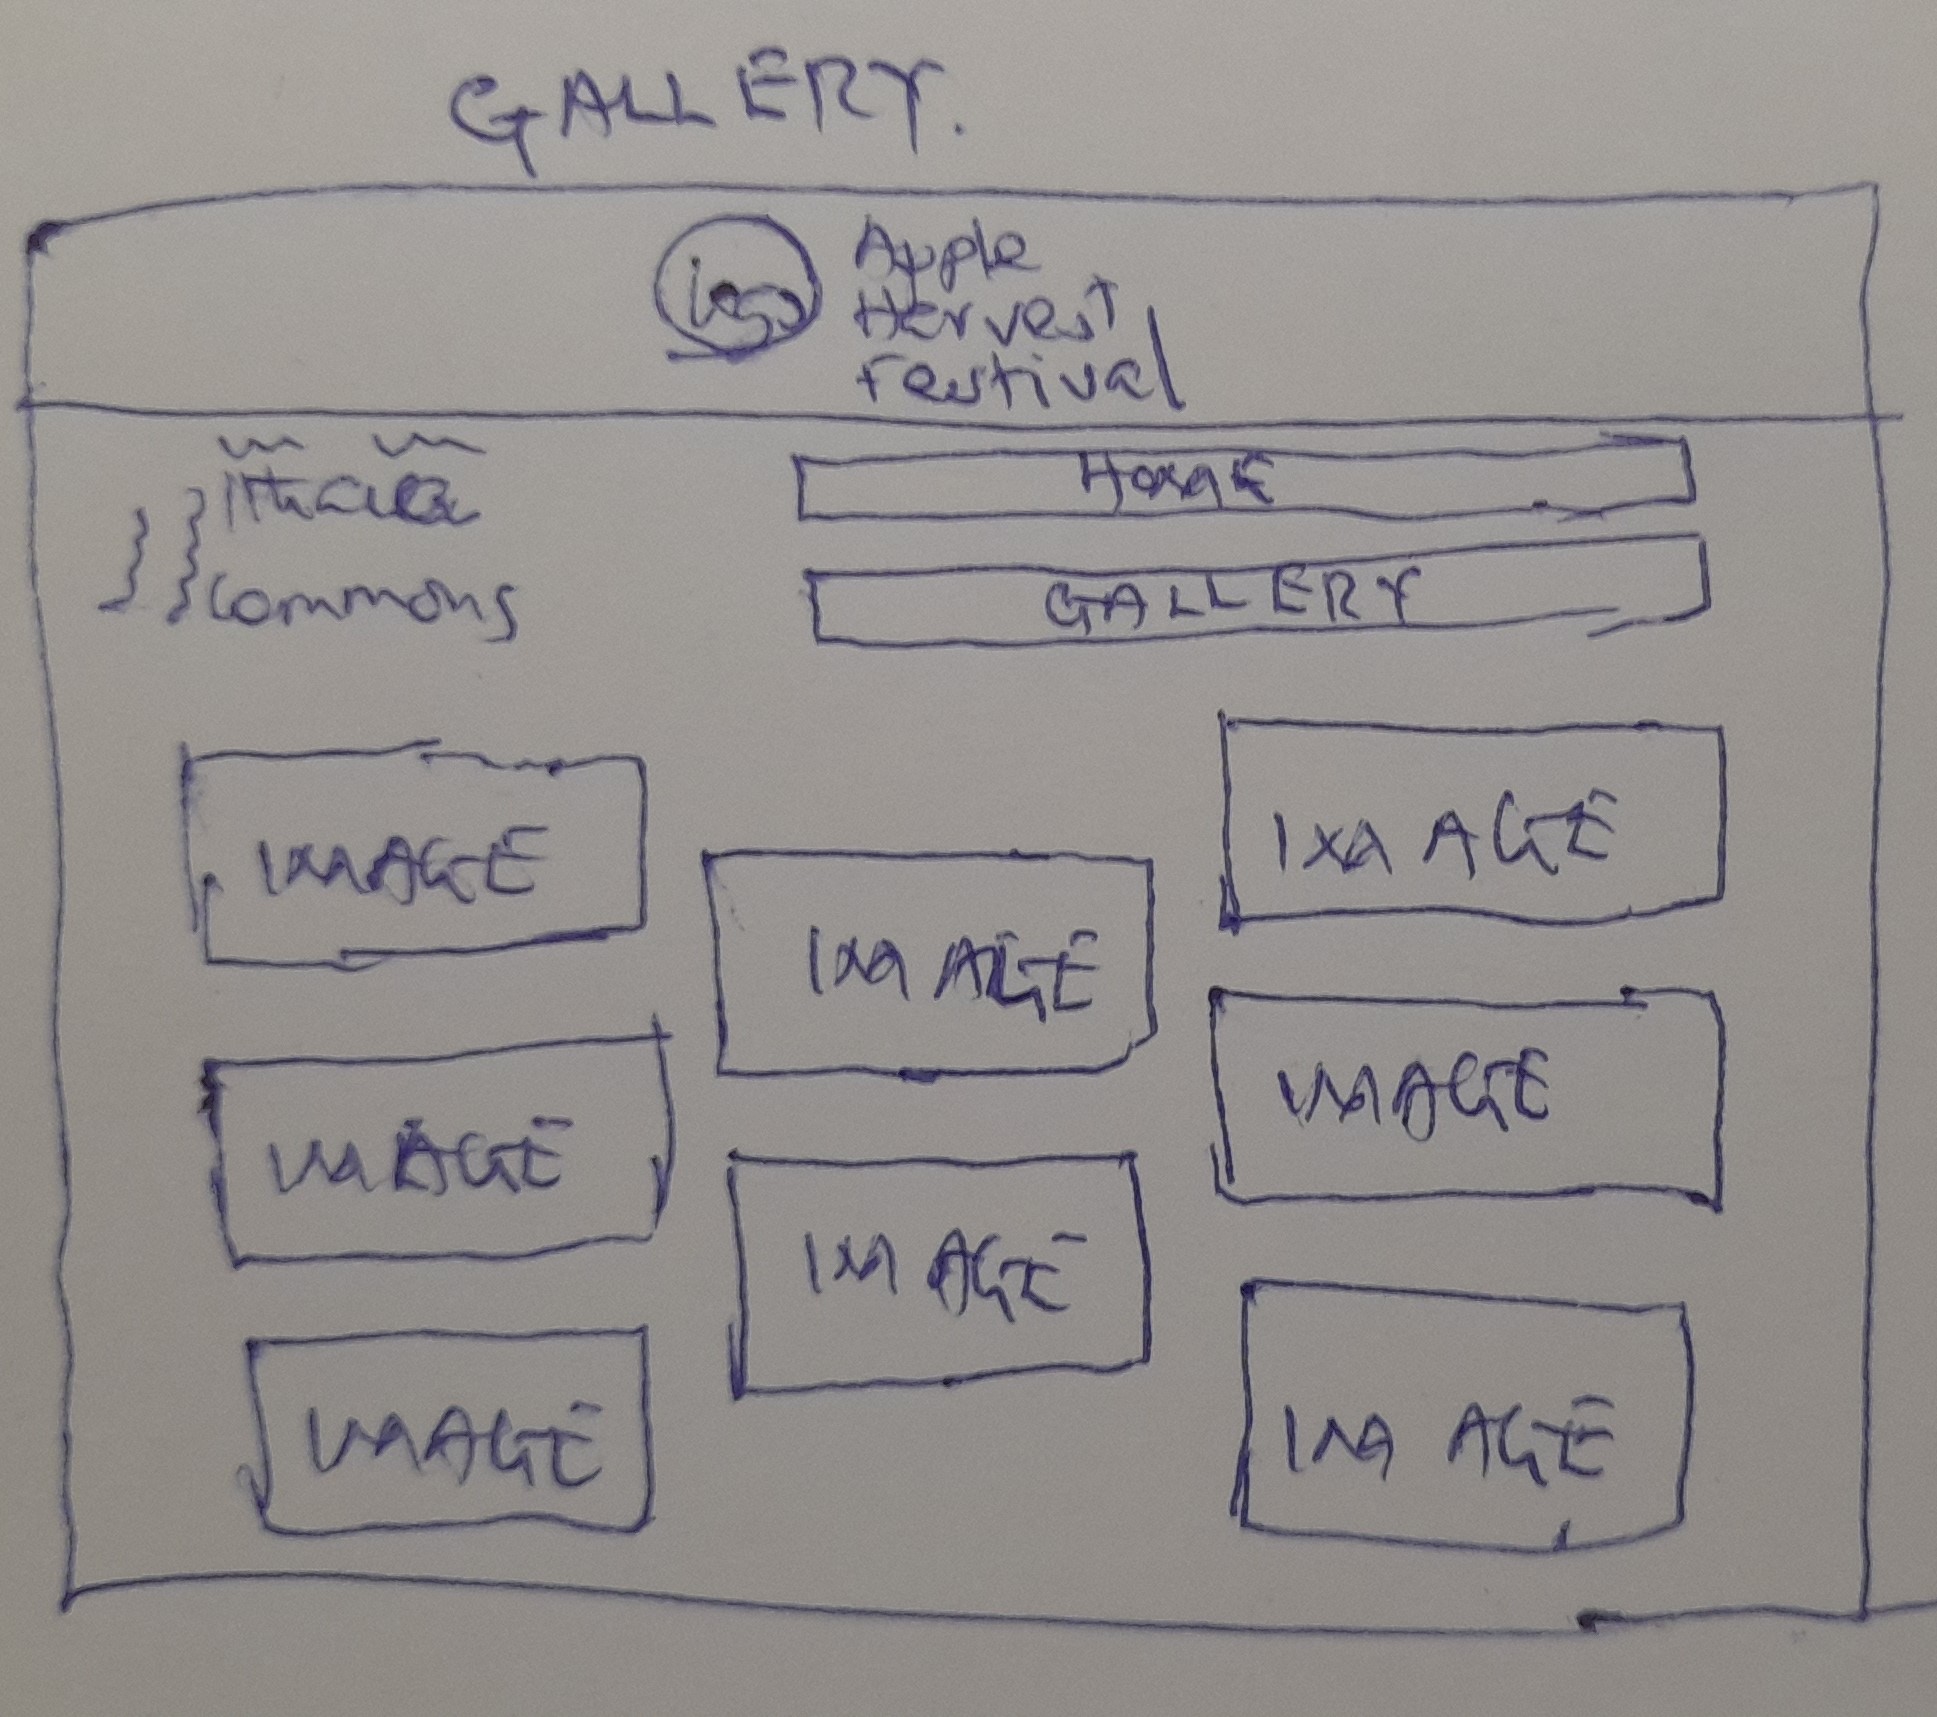 GALLERY.
logo
Apple
Harvest
Festival
Ithaca
Commons
HOME
GALLERY
IMAGE
IMAGE
IMAGE
IMAGE
IMAGE
IMAGE
IMAGE
IMAGE